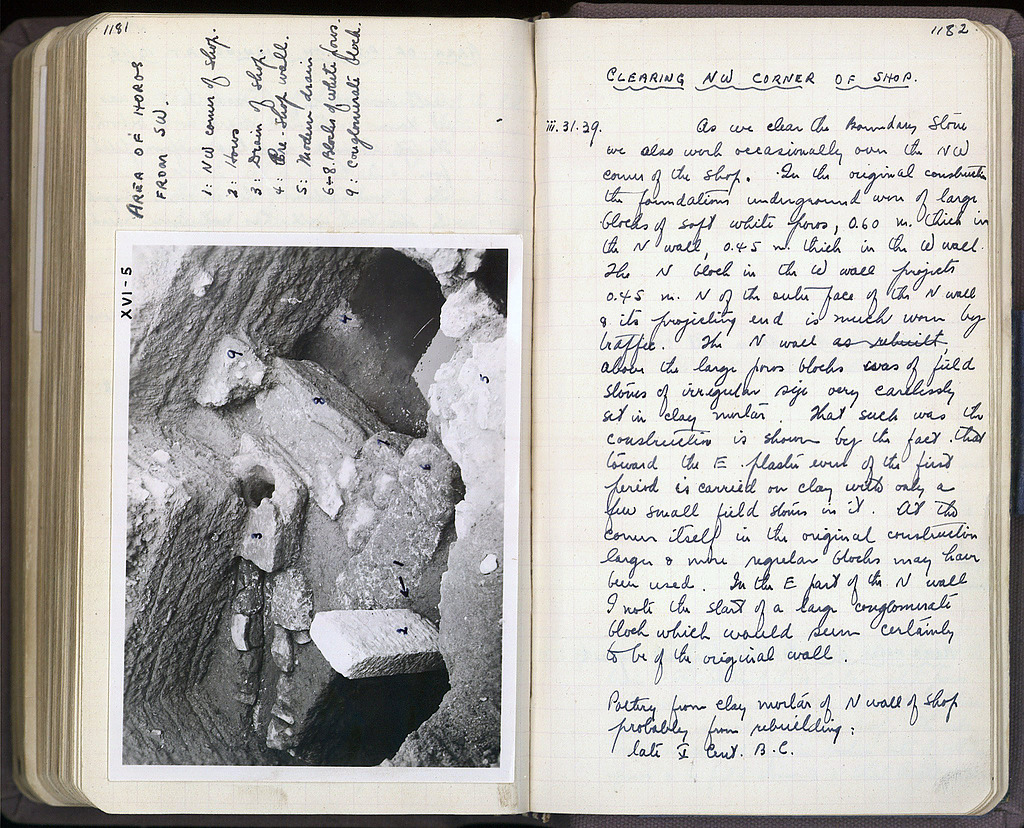 1181
AREA OF HOROS
FROM SW.
1: NW corner of shop.
2: Horos
3: Drain of shop.
4: Pre-shop wall.
5: Modern drain
6+8. Blocks of white poros.
9: Conglomerate block.
XVI-5
4
9
5
8
7
6
3
1
2
1182
CLEARING NW CORNER OF SHOP.
iii.31.39. As we clear the Boundary Stone
we also work occasionally over the NW
corner of the shop. In the original construction
the foundations underground were of large
blocks of soft white poros, 0.60 m. thick in
the N wall, 0.45 m. thick in the W wall.
The N block in the W wall projects
0.45 m. N of the outer face of the N wall
& its projecting end is much worn by
traffic. The N wall as rebuilt
above the large poros blocks was of field
stones of irregular size very carelessly
set in clay mortar. That such was the
construction is shown by the fact that
toward the E plaster even of the first
period is carried on clay with only a
few small field stones in it. At the
corner itself in the original construction
larger & more regular blocks may have
been used. In the E part of the N wall
I note the start of a large conglomerate
block which would seem certainly
to be of the original wall.
Pottery from clay mortar of N wall of shop
probably from rebuilding:
late V Cent. B.C.